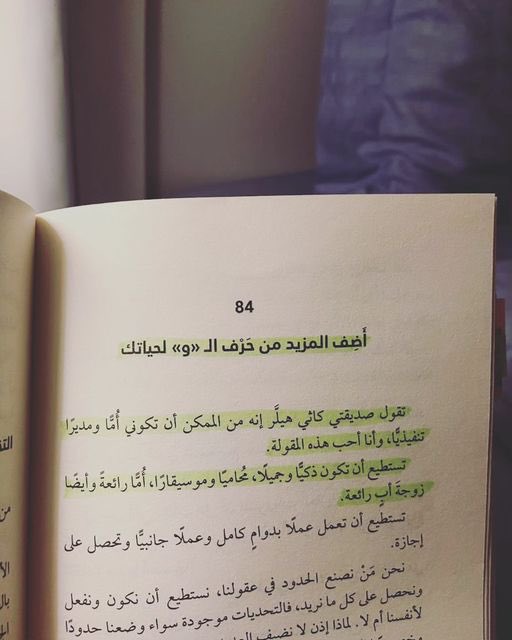 84
أَضِف المزيد من حَرْف الـ «و» لحياتك
تقول صديقتي كاثي هيلَّر إنه من الممكن أن تكوني أُمًّا ومديرًا
تنفيذيًّا، وأنا أحب هذه المقولة.
تستطيع أن تكون ذكيًّا وجميلًا، مُحاميًا وموسيقارًا، أُمًّا رائعةً وأيضًا
زوجةَ أبٍ رائعة.
تستطيع أن تعمل عملًا بدوامٍ كامل وعملًا جانبيًّا وتحصل على
إجازة.
نحن مَنْ نصنع الحدود في عقولنا، نستطيع أن نكون ونفعل
ونحصل على كل ما نريد، فالتحديات موجودة سواء وضعنا حدودًا
لأنفسنا أم لا. لماذا إذن لا نضيف